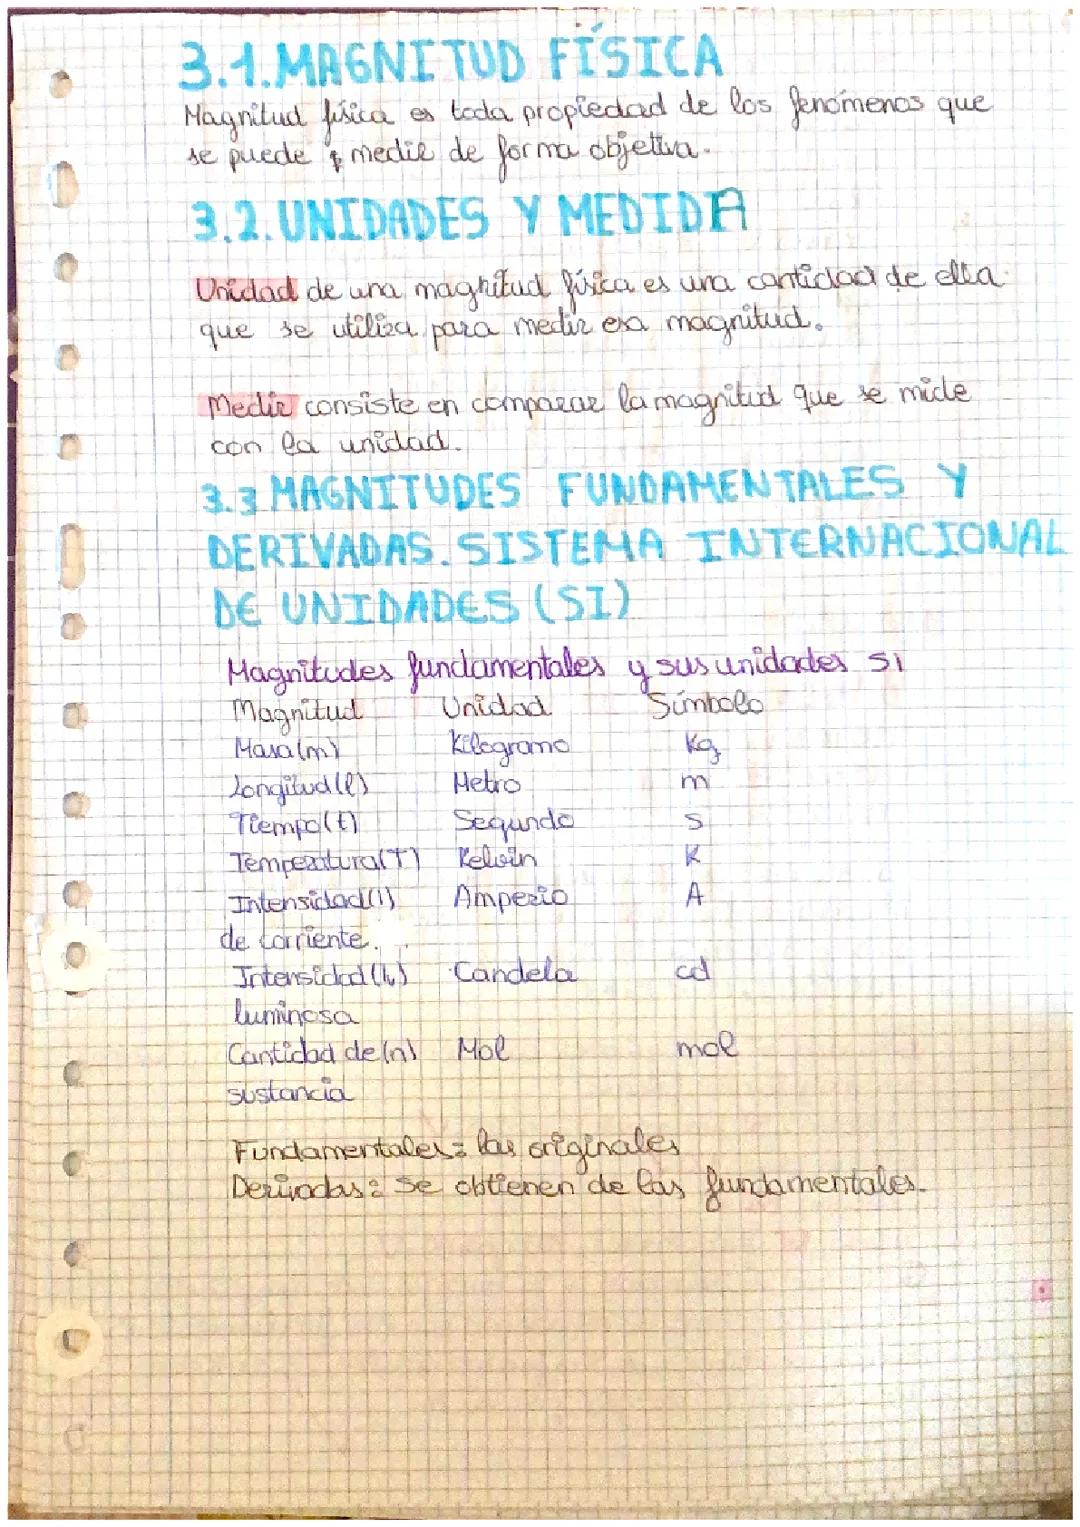 3.1.MAGNITUD FÍSICA
Magnitud física es toda propiedad de los fenómenos que
se puede medir de forma objetiva.
3.2.UNIDADES Y MEDIDA
Unidad de una magnitud física es una cantidad de ella
que se utiliza para medir esa magnitud.
Medir consiste en comparar la magnitud que se mide
con la unidad.
3.3 MAGNITUDES FUNDAMENTALES Y
DERIVADAS. SISTEMA INTERNACIONAL
DE UNIDADES (SI)
Magnitudes fundamentales y sus unidades SI
Magnitud Unidad Símbolo
Masa(m) Kilogramo Kg
Longitud(l) Metro m
Tiempo(t) Segundo s
Temperatura(T) Kelvin K
Intensidad(I) Amperio A
de corriente.
Intensidad Candela cd
luminosa
Cantidad de(n) Mol mol
sustancia
Fundamentales: las originales
Derivadas: Se obtienen de las fundamentales.